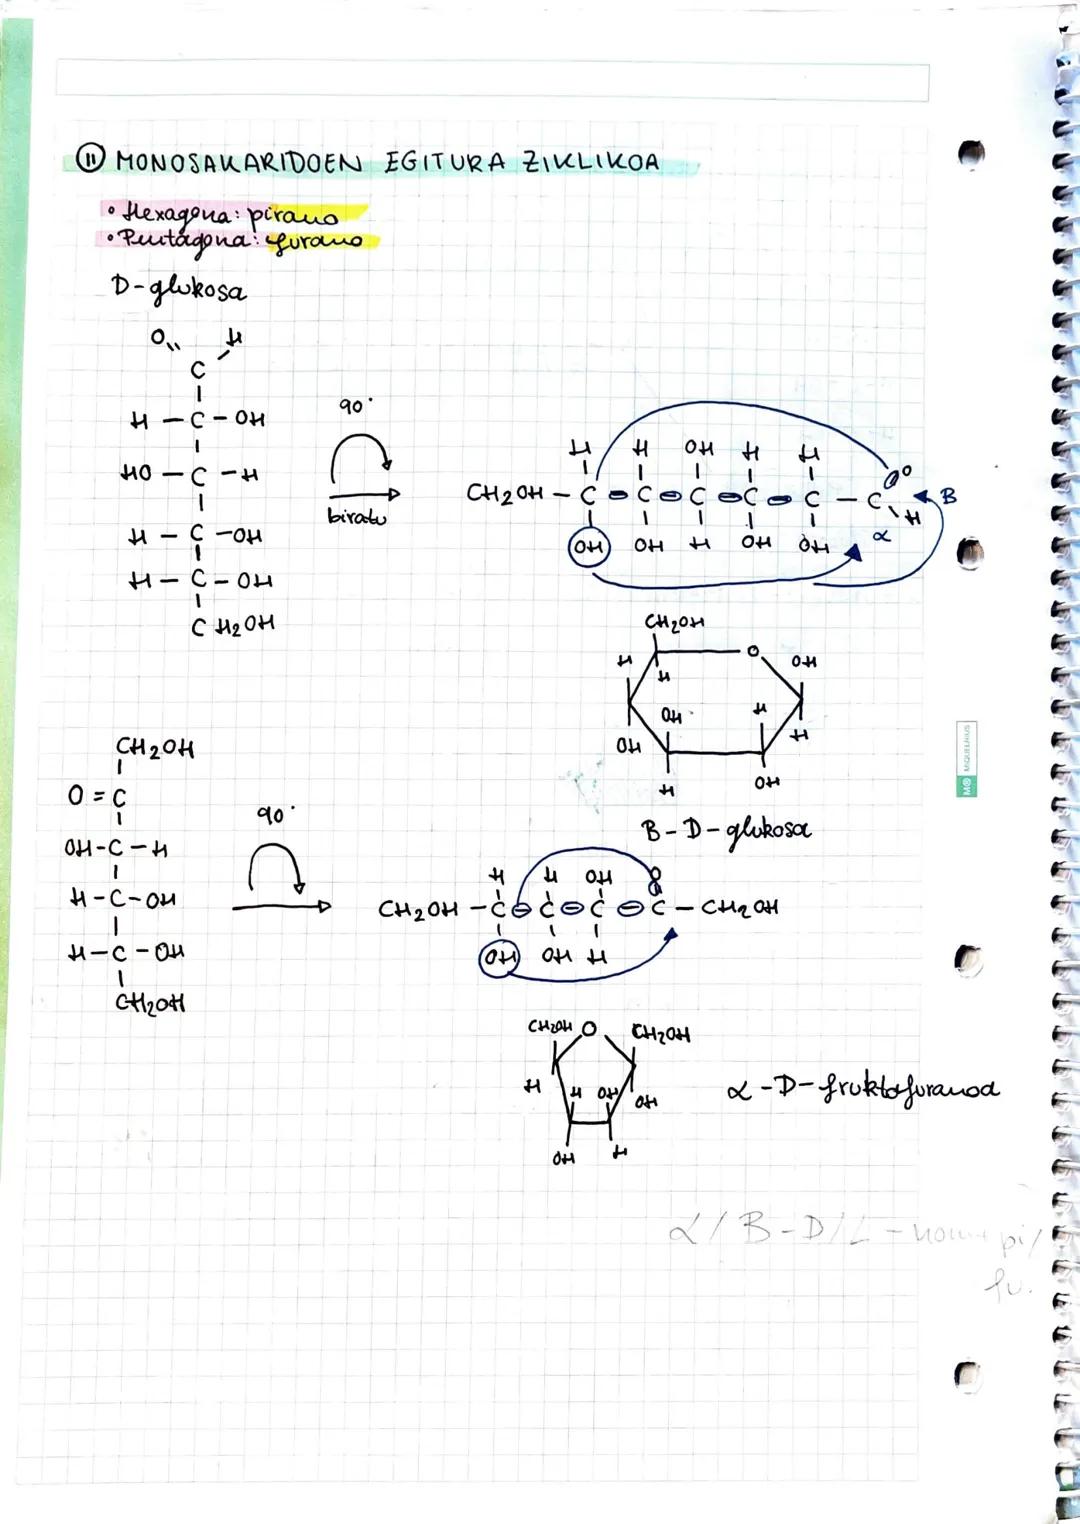 11 MONOSAKARIDOEN EGITURA ZIKLIKOA
• Hexagona: pirano
• Pentagona: furano
D-glukosa
O H
C
H - C - OH
HO - C - H
H - C - OH
H - C - OH
CH2OH
90°
biratu
H H OH H H O
CH2OH - C - C - C - C - C - C B
H
OH OH H OH OH α
CH2OH
H O OH
H
OH H
OH H
H OH
B-D-glukosa
CH2OH
O = C
OH-C-H
H-C-OH
H-C-OH
CH2OH
90°
H H OH O
CH2OH - C - C - C - C - CH2OH
OH OH H
CH2OH O CH2OH
H H OH OH
OH H
α-D-fruktofuranosa
α/B-D/L-nom+pi/
fu.
MIQUELRIUS